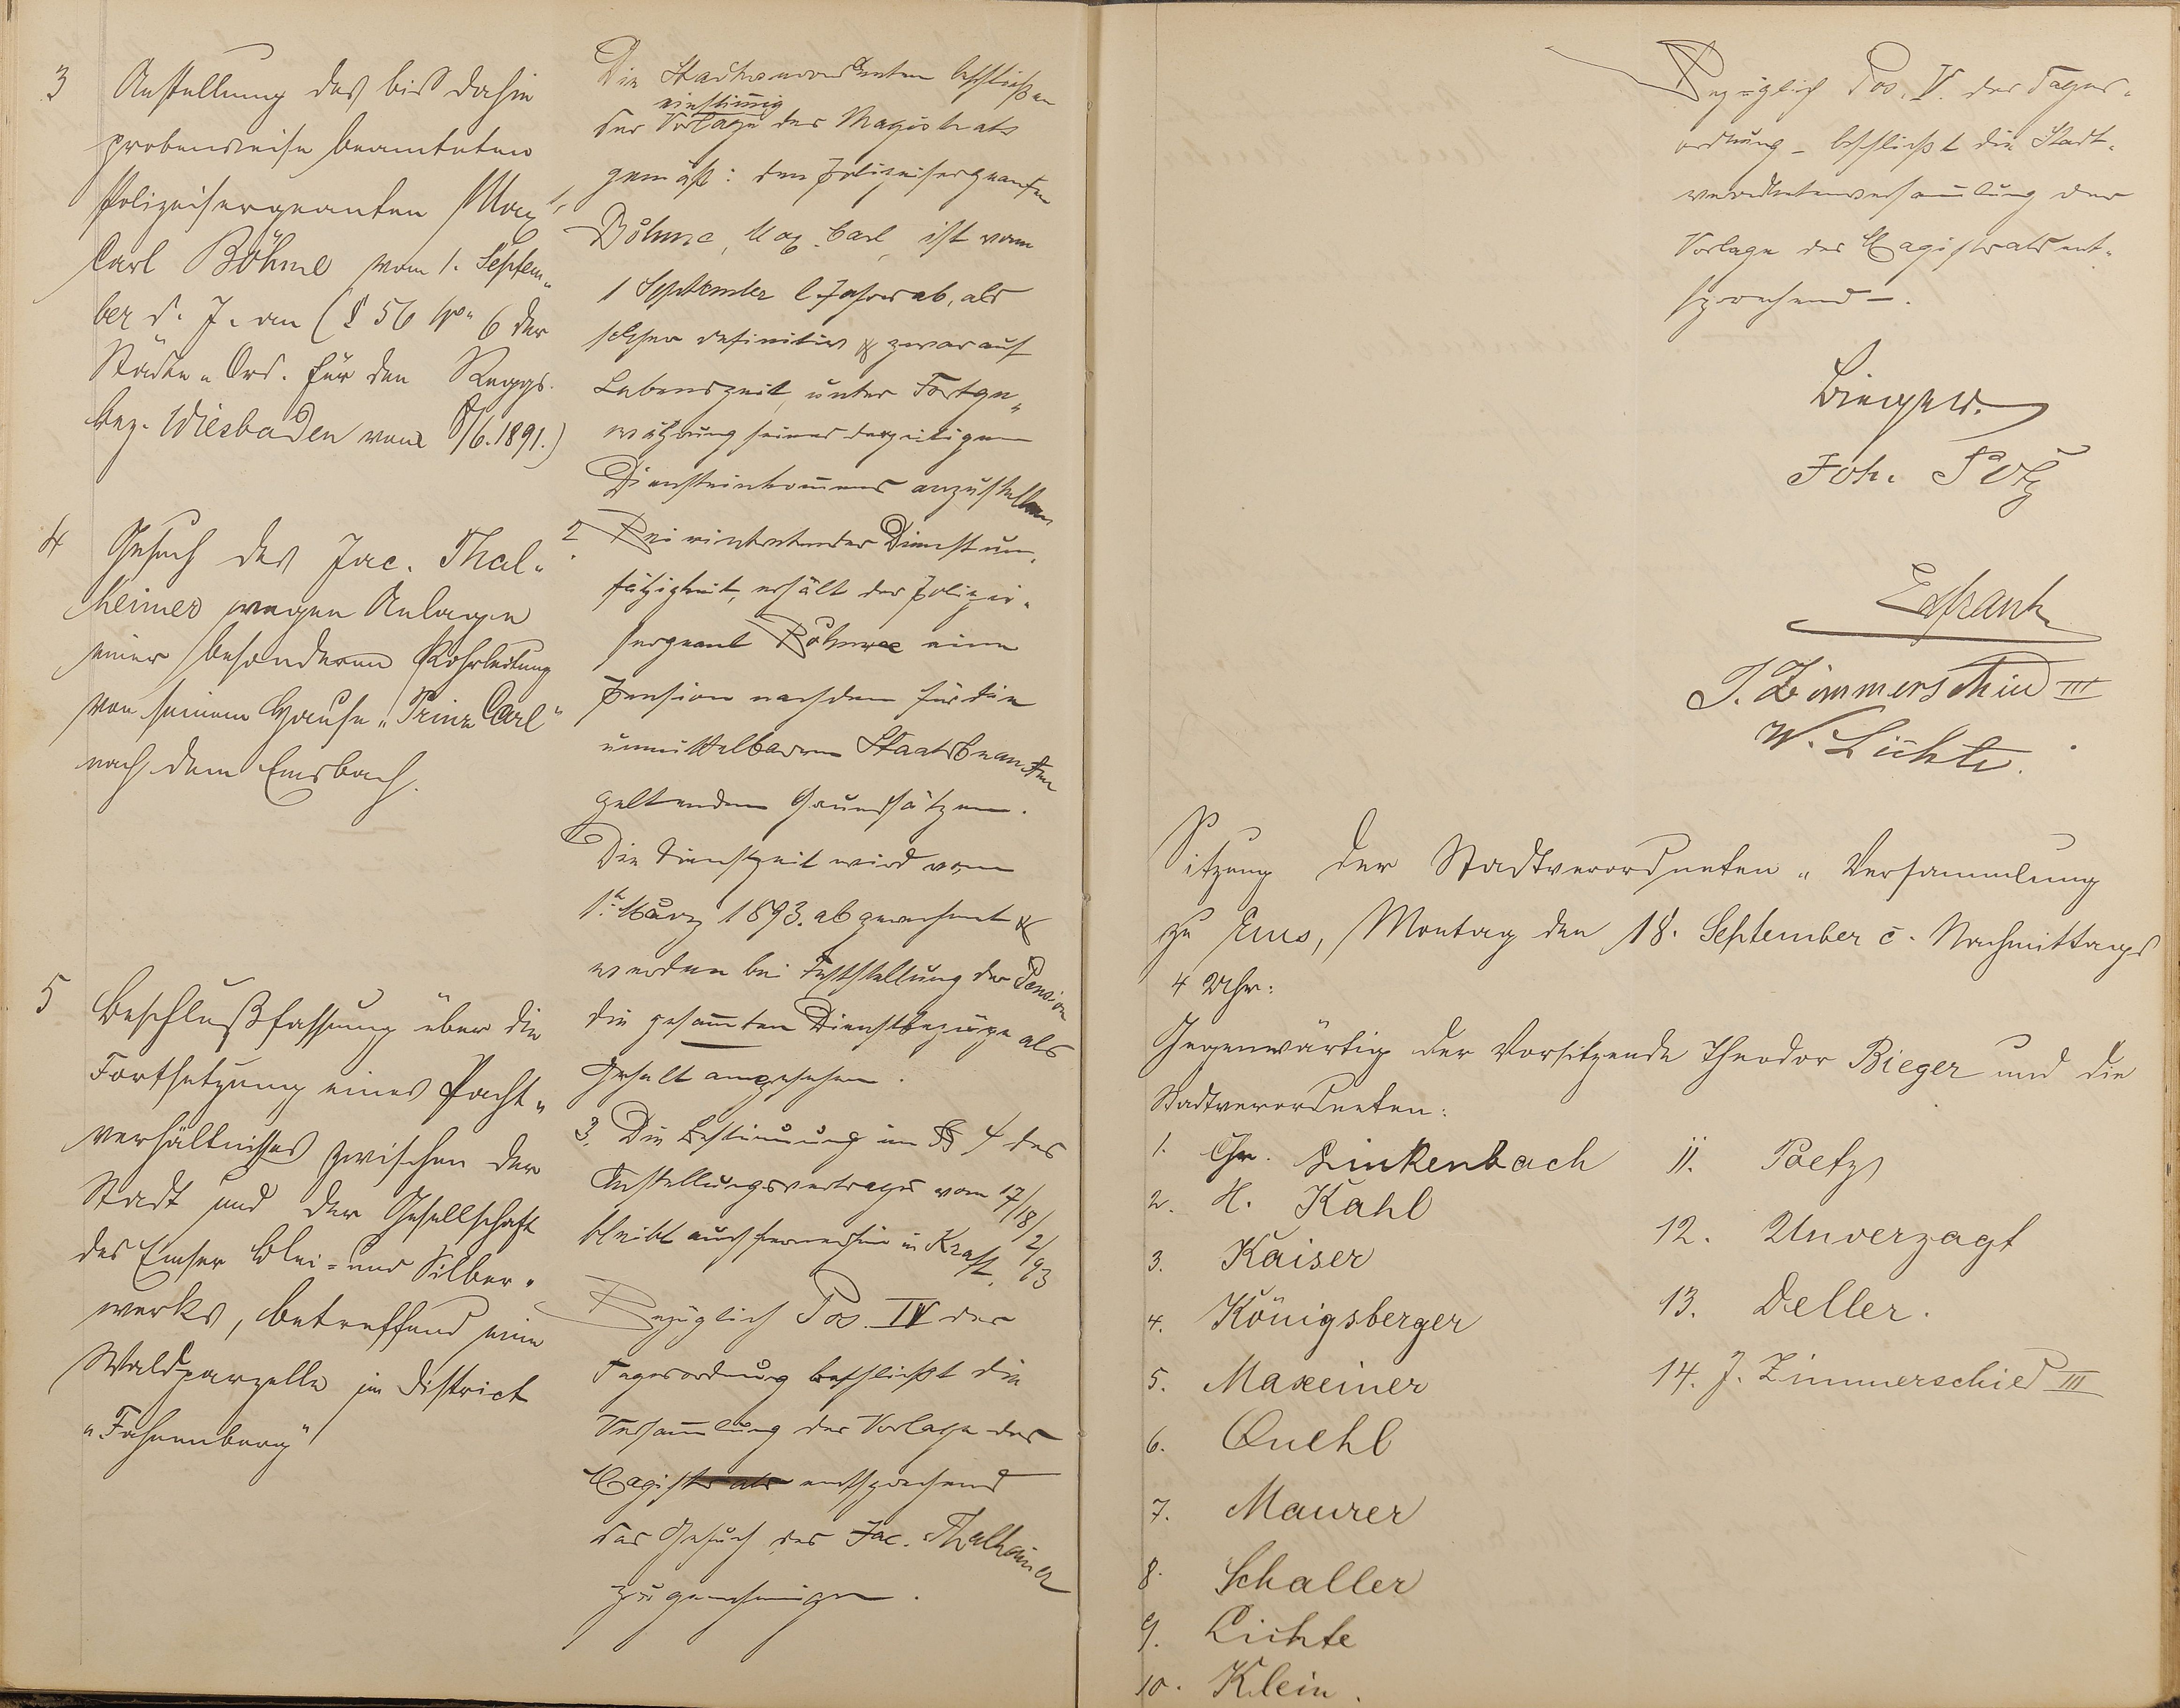 3 Anstellung des bis dahin
probeweise beamteten
Polizeisergeanten Max
Carl Böhme vom 1. Septem„
ber d. J. an (§ 56 No 6 der
Städte„Ord. für den Reggs.
bez. Wiesbaden vom 8/6.1891.)
4 Gesuch des Jac. Thal„
heimer wegen Anlage
einer besonderen Rohrleitung
von seinem Hause „Prinz Carl“
nach dem Emsbach.
5 Beschlußfassung über die
Fortsetzung eines Pacht„
verhältnisses zwischen der
Stadt und der Gesellschaft
des Emser Blei- und Silber„
werks, betreffend eine
Waldparzelle im District
„Fahnenberg“
Die Stadtverordneten beschließen
einstimig
der Vorlage des Magistrats
gemäß: den Polizeisergeanten
Böhme, Max Carl, ist vom
1 September l. Jahres ab, als
solcher definitiv & zwar auf
Lebenszeit, unter Fortge„
währung seines derzeitigen
Diensteinkomens anzustellen
2. Bei eintretender Dienstun„
fähigkeit, erhält der Polizei„
sergeant Böhme eine
Pension nach den für die
unmittelbaren Staatsbeamten
geltenden Grundsätzen.
Die Dienstzeit wird vom
1t März 1893. ab gerechnet &
werden bei Feststellung der Pension
die gesamten Dienstbezüge als
Gehalt angesehen.
3. Die Bestimung im § 4 des
Anstellungsvertrages vom 17/18/2/93
bleibt auch fernerhin in Kraft.
Bezüglich Pos. IV der
Tagesordnung beschließt die
Versamlung der Vorlage des
Magistrats entsprechend
das Gesuch des Jac. Thalheimer
zu genehmigen.
Bezüglich Pos. V. der Tages„
ordnung – beschließt die Stadt„
verordnetenversamlung der
Vorlage des Magistrats ent„
sprechend –.
Bieger.
Joh. Potz
Efrank
J. Zimmerschied III
W. Lichte.
Sitzung der Stadtverordneten„Versammlung
zu Ems, Montag den 18. September c. Nachmittags
4 Uhr:
Gegenwärtig der Vorsitzende Theodor Bieger und die
Stadtverordneten:
1. Chr. Linkenbach
2. H. Kahl
3. Kaiser
4. Königsberger
5. Maxeiner
6. Quehl
7. Maurer
8. Schaller
9. Lichte
10. Klein.
11. Poetz
12. Unverzagt
13. Deller.
14. J. Zimmerschied III